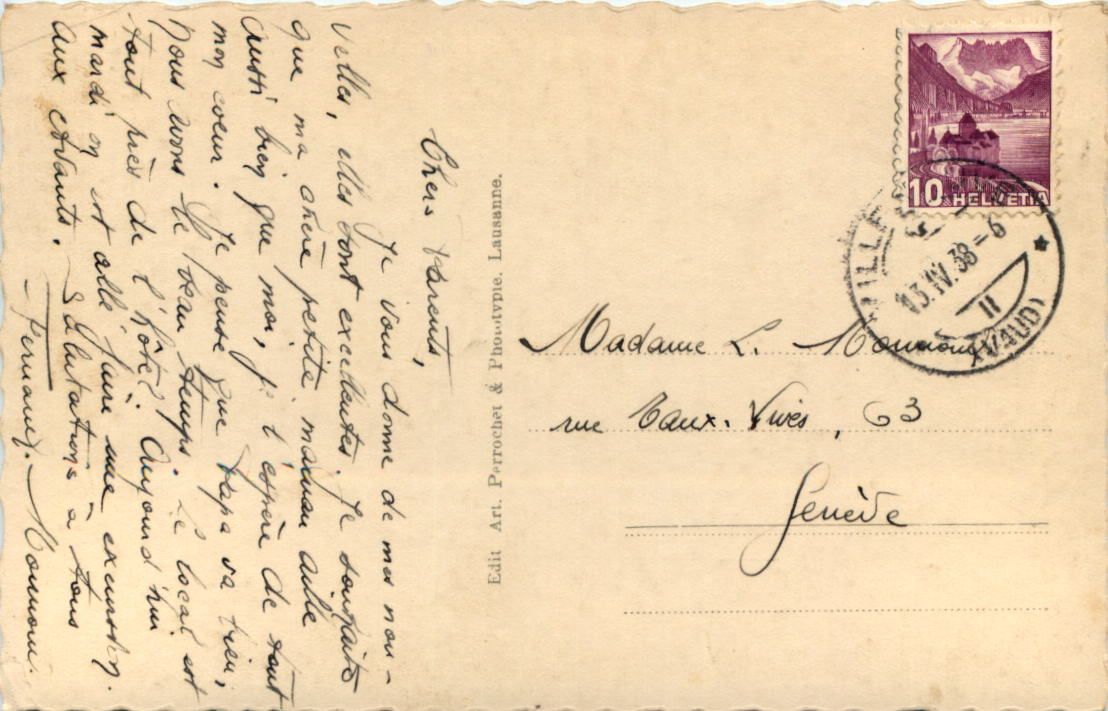 Chers Parents,
Je vous donne de mes nou-
velles, elles sont excellentes. Je souhaite
que ma chère petite maman aille
aussi bien que moi, je l'espère de tout
mon coeur. Je pense que papa va bien,
nous avons le beau temps. Le local est
tout près de l'hôtel. Aujourd'hui
mardi on est allé faire une excursion
aux Avants. Salutations à tous
Fernand.
Edit Art. Perrochet & Phototypie. Lausanne.
10 HELVETIA
13.IV.38-6
II
(VAUD)
Madame L.
rue Eaux-Vives, 63
Genève